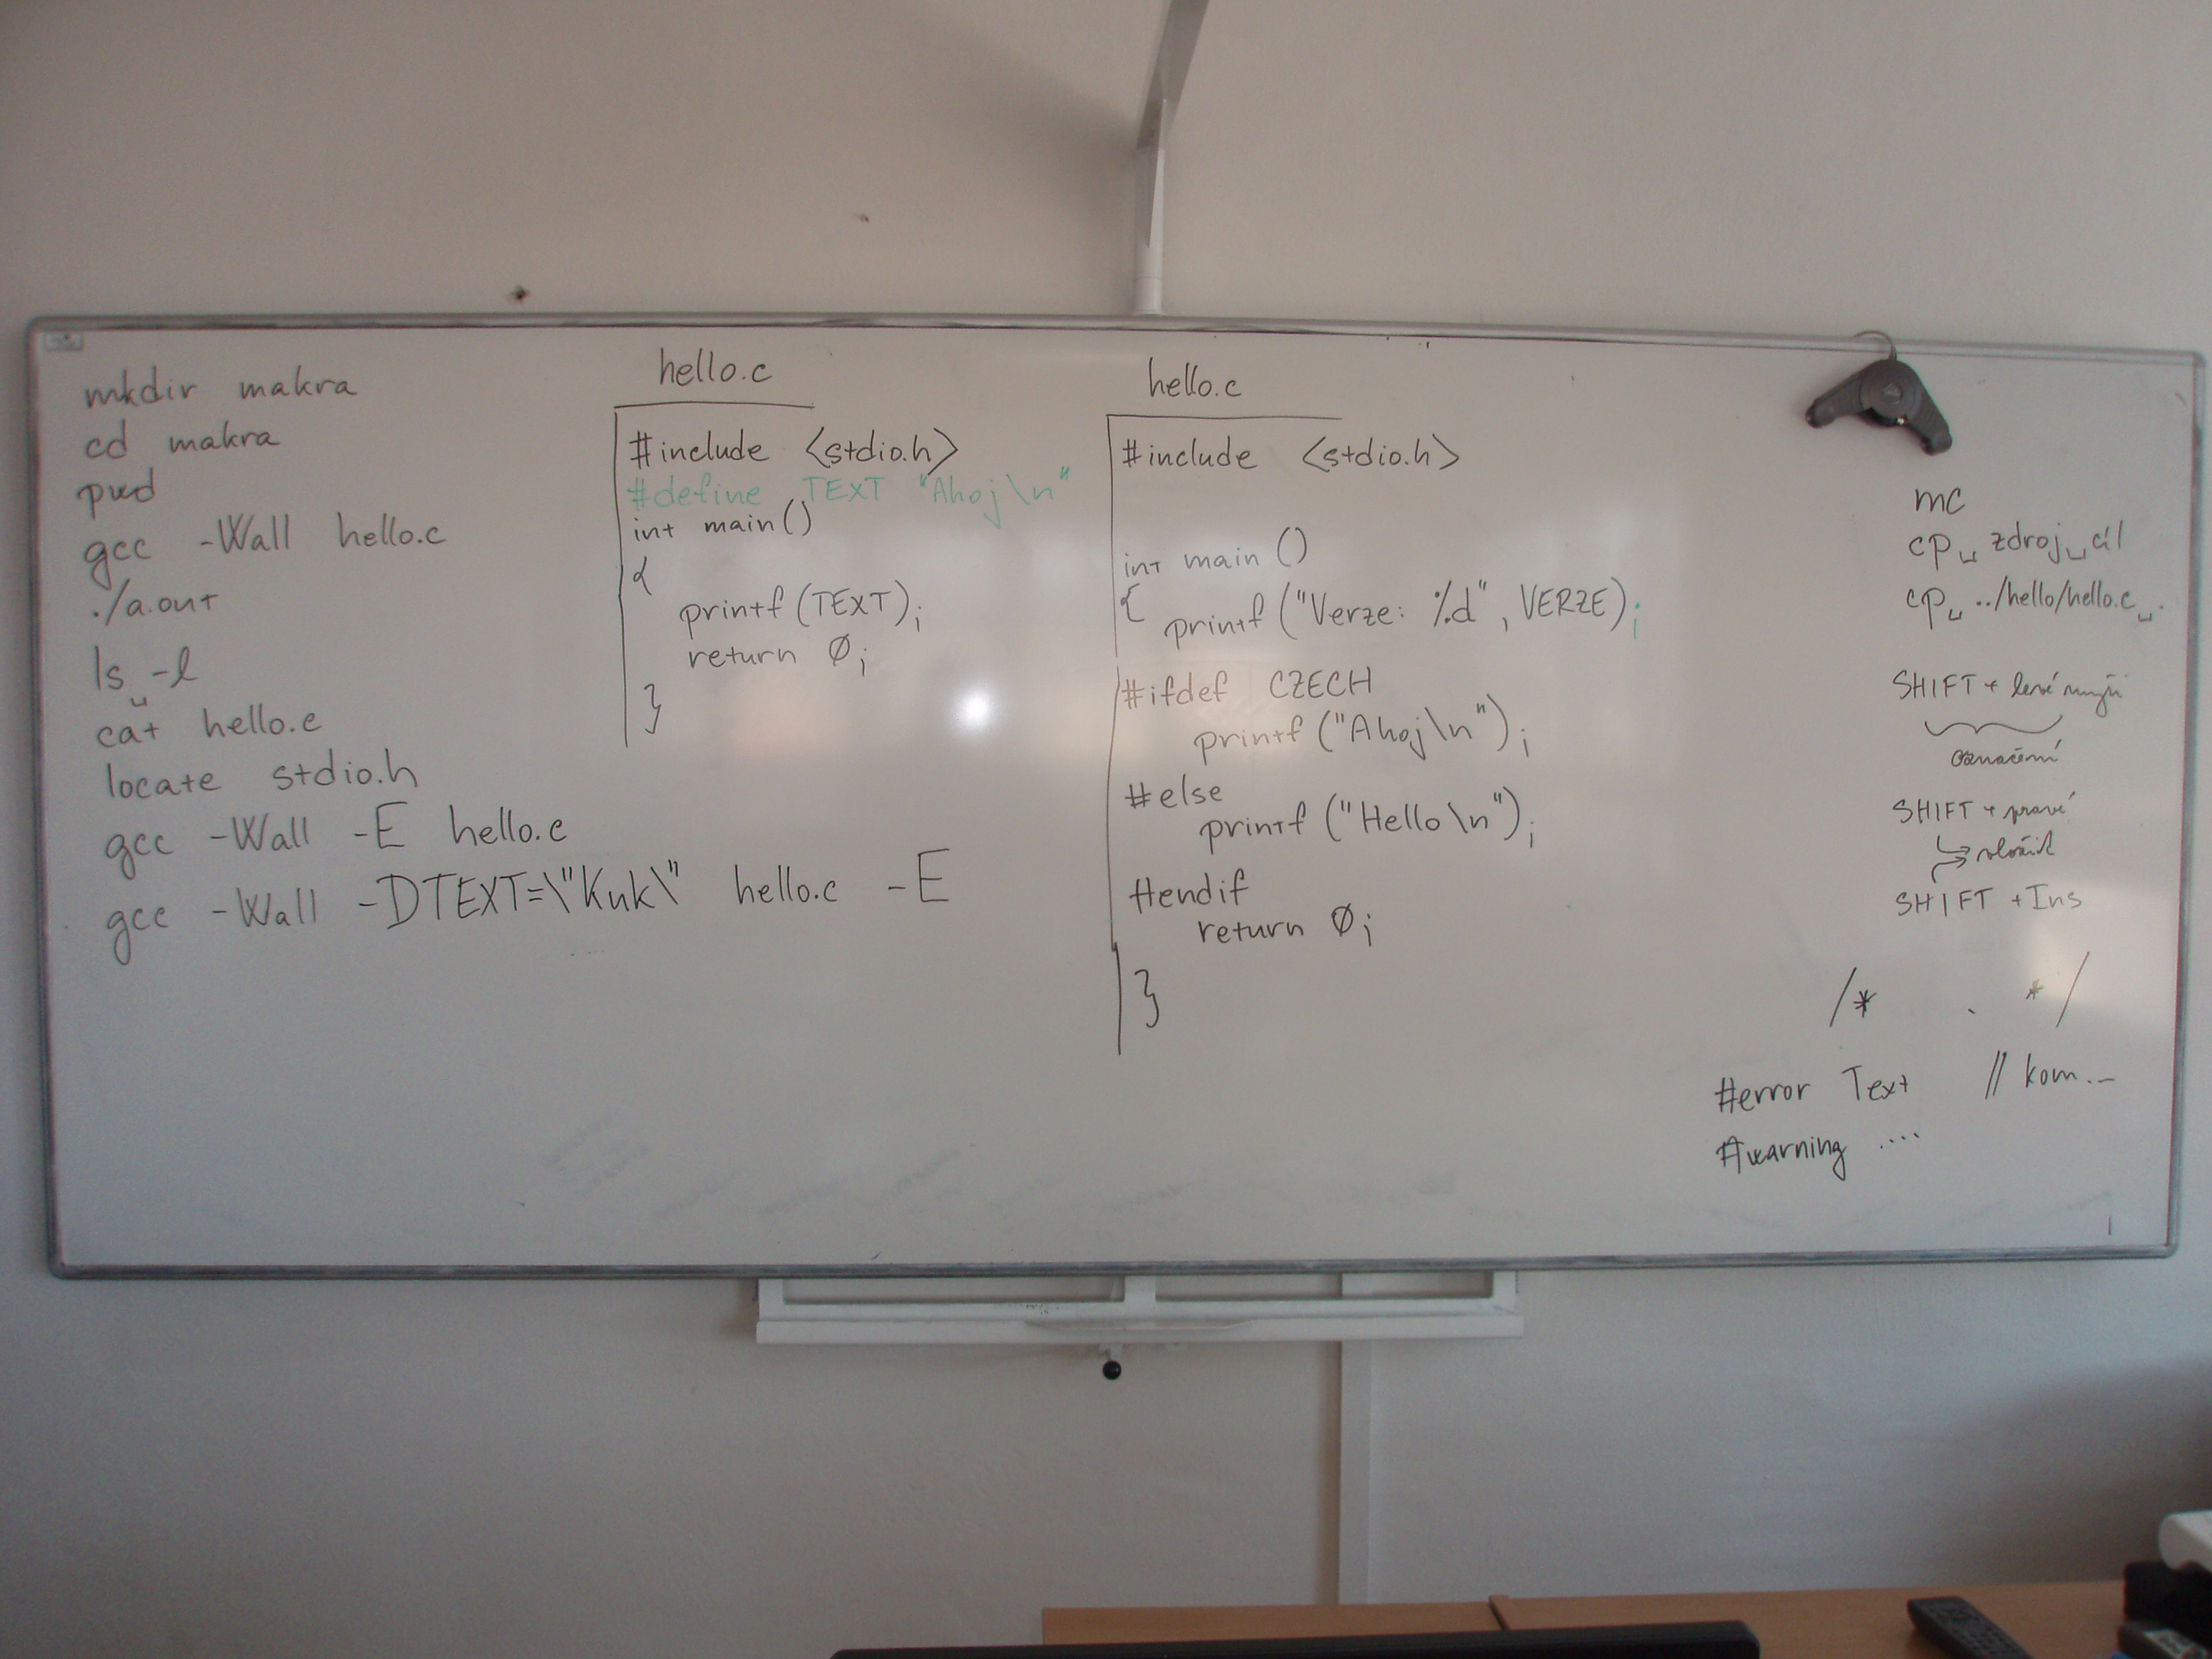 mkdir makra
cd makra
pwd
gcc -Wall hello.c
./a.out
ls␣-l
cat hello.c
locate stdio.h
gcc -Wall -E hello.c
gcc -Wall -DTEXT=\"Kuk\" hello.c -E
hello.c
#include <stdio.h>
#define TEXT "Ahoj\n"
int main()
{
printf(TEXT);
return 0;
}
hello.c
#include <stdio.h>
int main ()
{ printf ("Verze: %d", VERZE);
#ifdef CZECH
printf ("Ahoj\n");
#else
printf ("Hello\n");
#endif
return 0;
}
mc
cp␣zdroj␣cíl
cp␣../hello/hello.c␣.
SHIFT + levé myši
označení
SHIFT + pravé
vložit
SHIFT + Ins
/* . */
#error Text // kom...
#warning ....